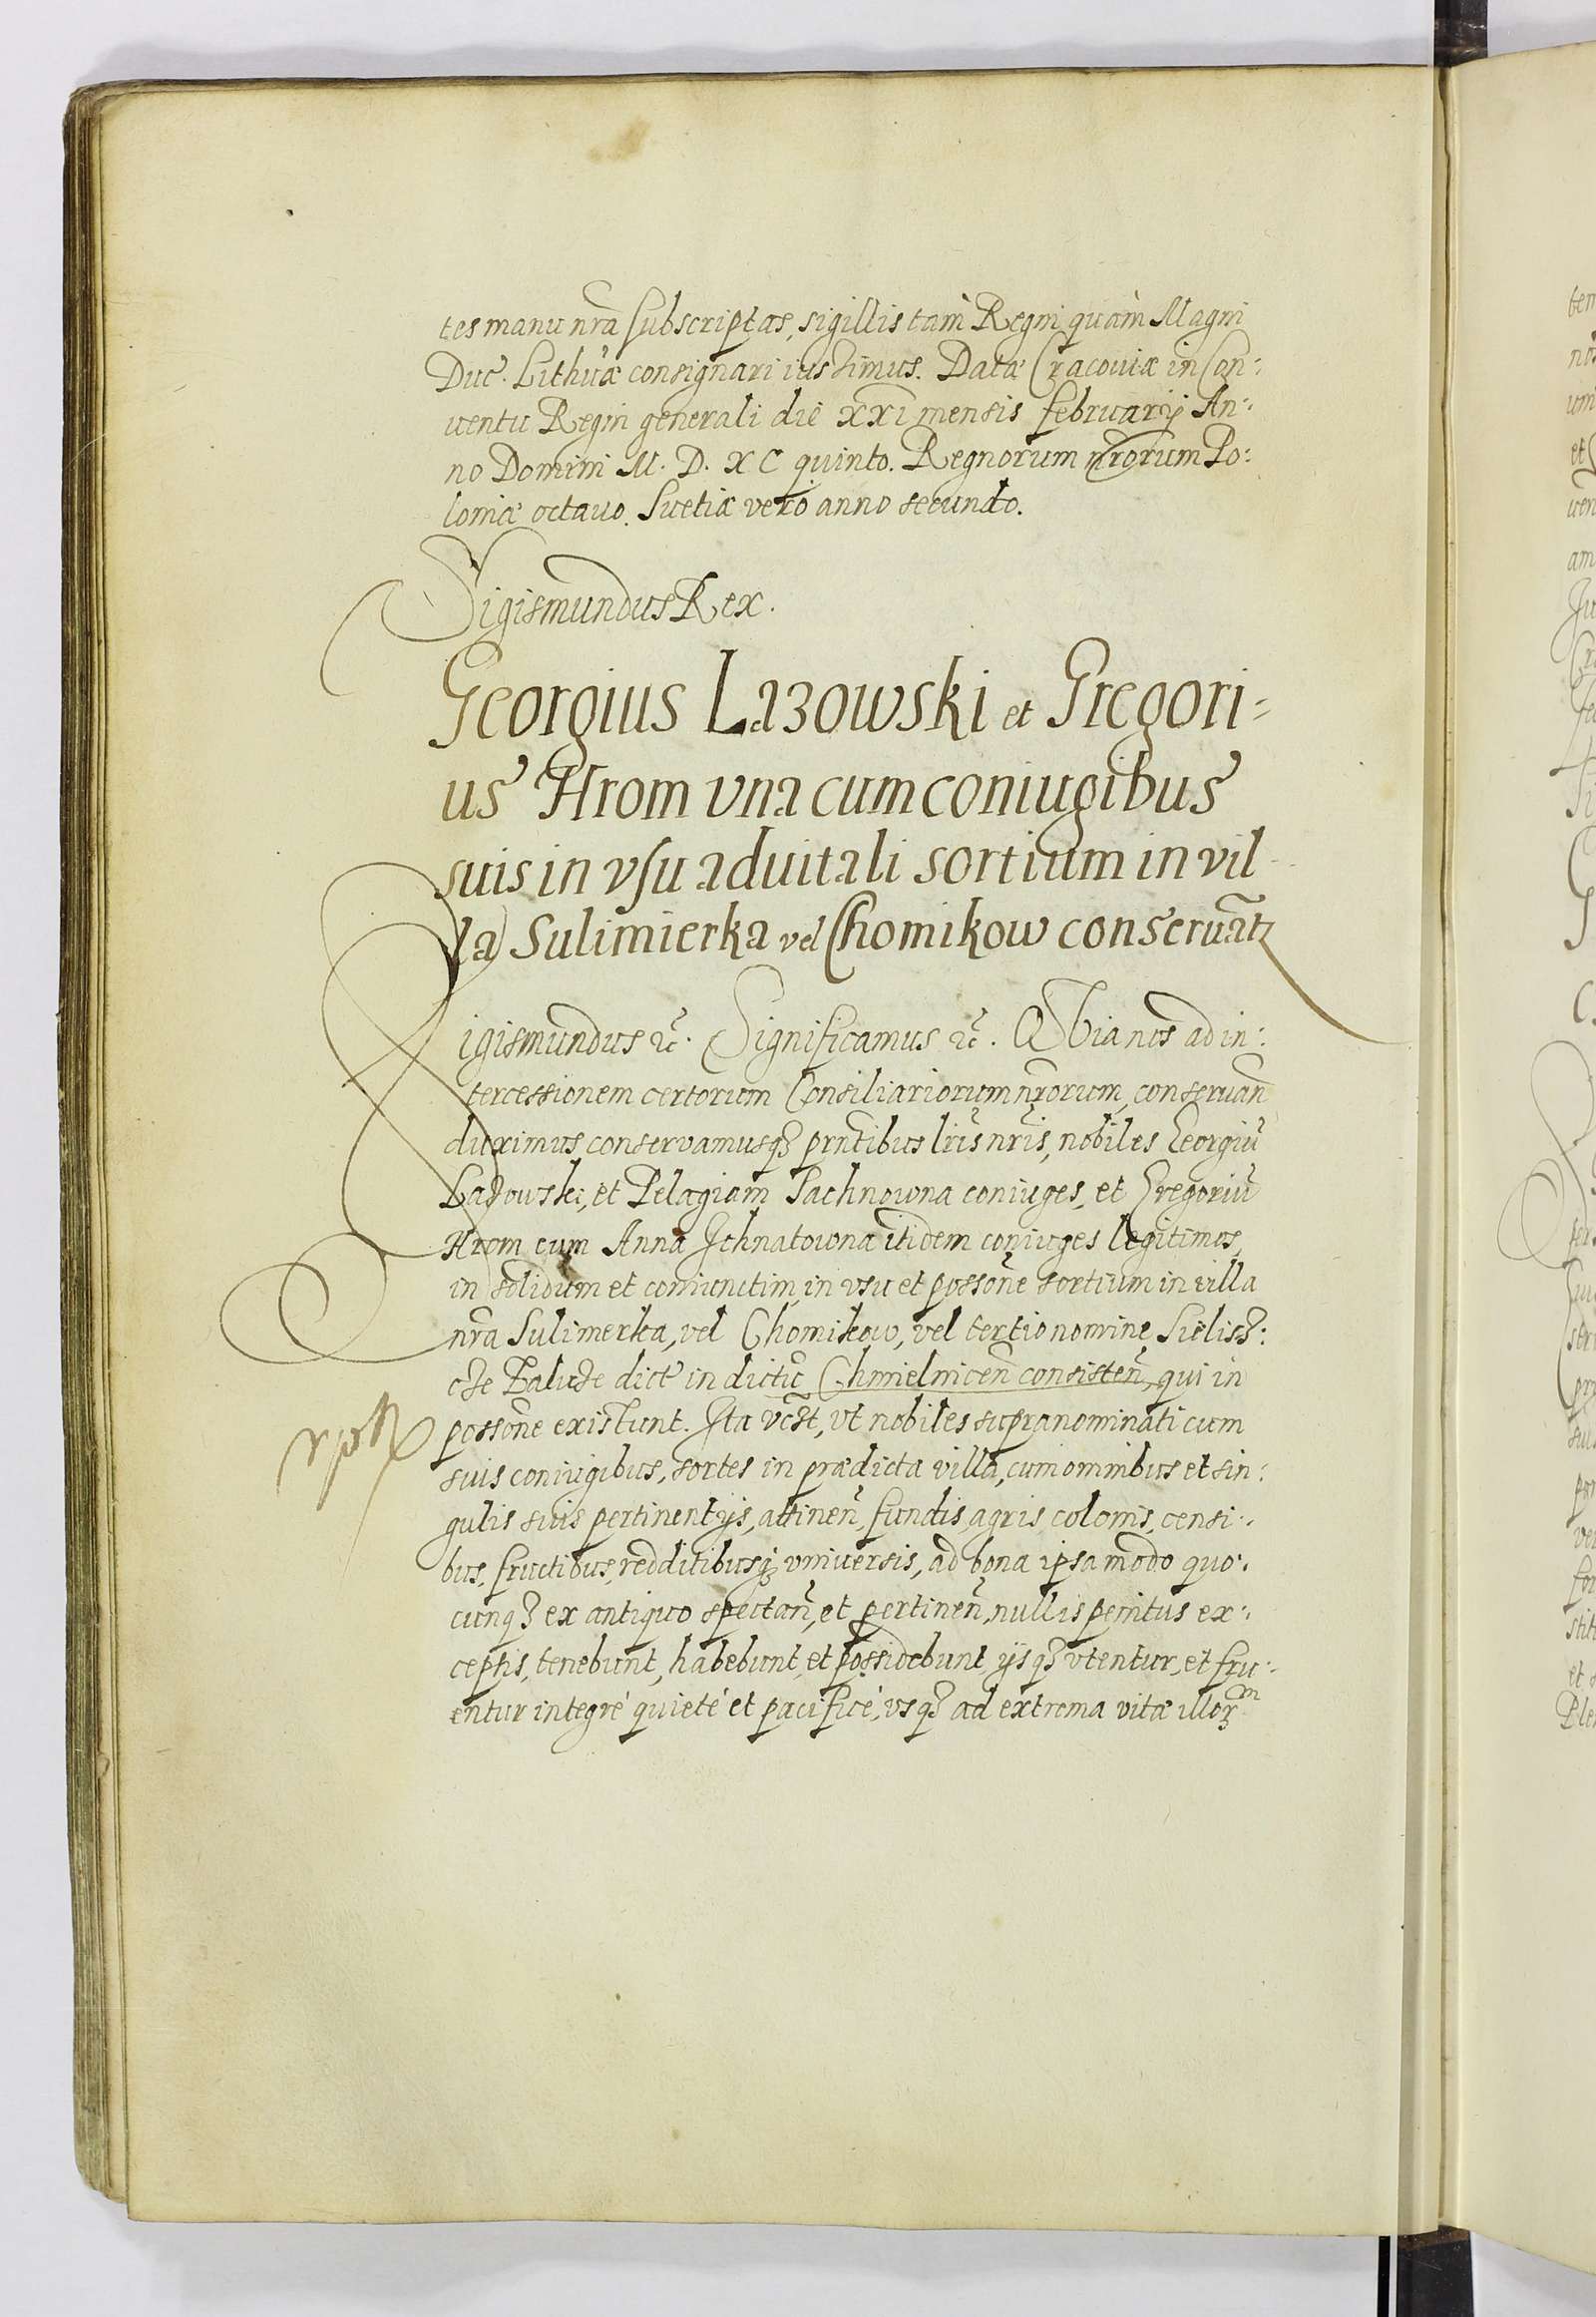 tes manu nrã subscriptas, sigillis tam Regni quàm Magni
Duc̃. Lithũæ consignari iussimus. Datæ Cracouiæ in Con:
uentu Regni generali die XXI mensis februarij An:
no Domini M. D. XC quinto. Regnorum nr̃orum Po:
loniæ octauo. Suetiæ verò anno secundo.
Sigismundus Rex.
Georgius Lazowski et Gregori=
us Hrom vna cum coniugibus
suis in vsu aduitali sortium in vil
la Sulimierka vel Chomikow conseruãtʒ
Sigismundus ꝛc̃. Significamus ꝛc̃. Quia nos ad in:
tercessionem certorum Consiliariorum nr̃orum, conseruañ
duximus conservamusqʒ prñtibus lr̃is nr̃is, nobiles Georgiũ
Lazowski, et Pelagiam Pachnowna coniuges, et Gregoriũ
Hrom cum Anna Jchnatowna itidem coniuges legitimos,
in solidum et coniunctim, in vsu et possoñe sortium in villa
nrã Sulimerka, vel Chomikow, vel tertio nomine Sielisz:
cze Baludze dict̃ in dictũ Chmielnicen̄ consisten̄, qui in
possoñe existunt. Jta vc̃zt, vt nobiles supranominati cum
suis coniugibus, sortes in prædicta villa, cum omnibus et sin:
gulis suis pertinentijs, attinen̄, fundis, agris, colonis, censi:
bus, fructibus, redditibusqʒ vniuersis, ad bona ipsa modo quo:
cunqʒ ex antiquo spectañ, et pertinen̄, nullis penitus ex:
ceptis, tenebunt, habebunt, et possidebunt, ijsqʒ vtentur, et fru:
entur integré quieté et pacificé, vsqʒ ad extrema vitæ illorᵐ